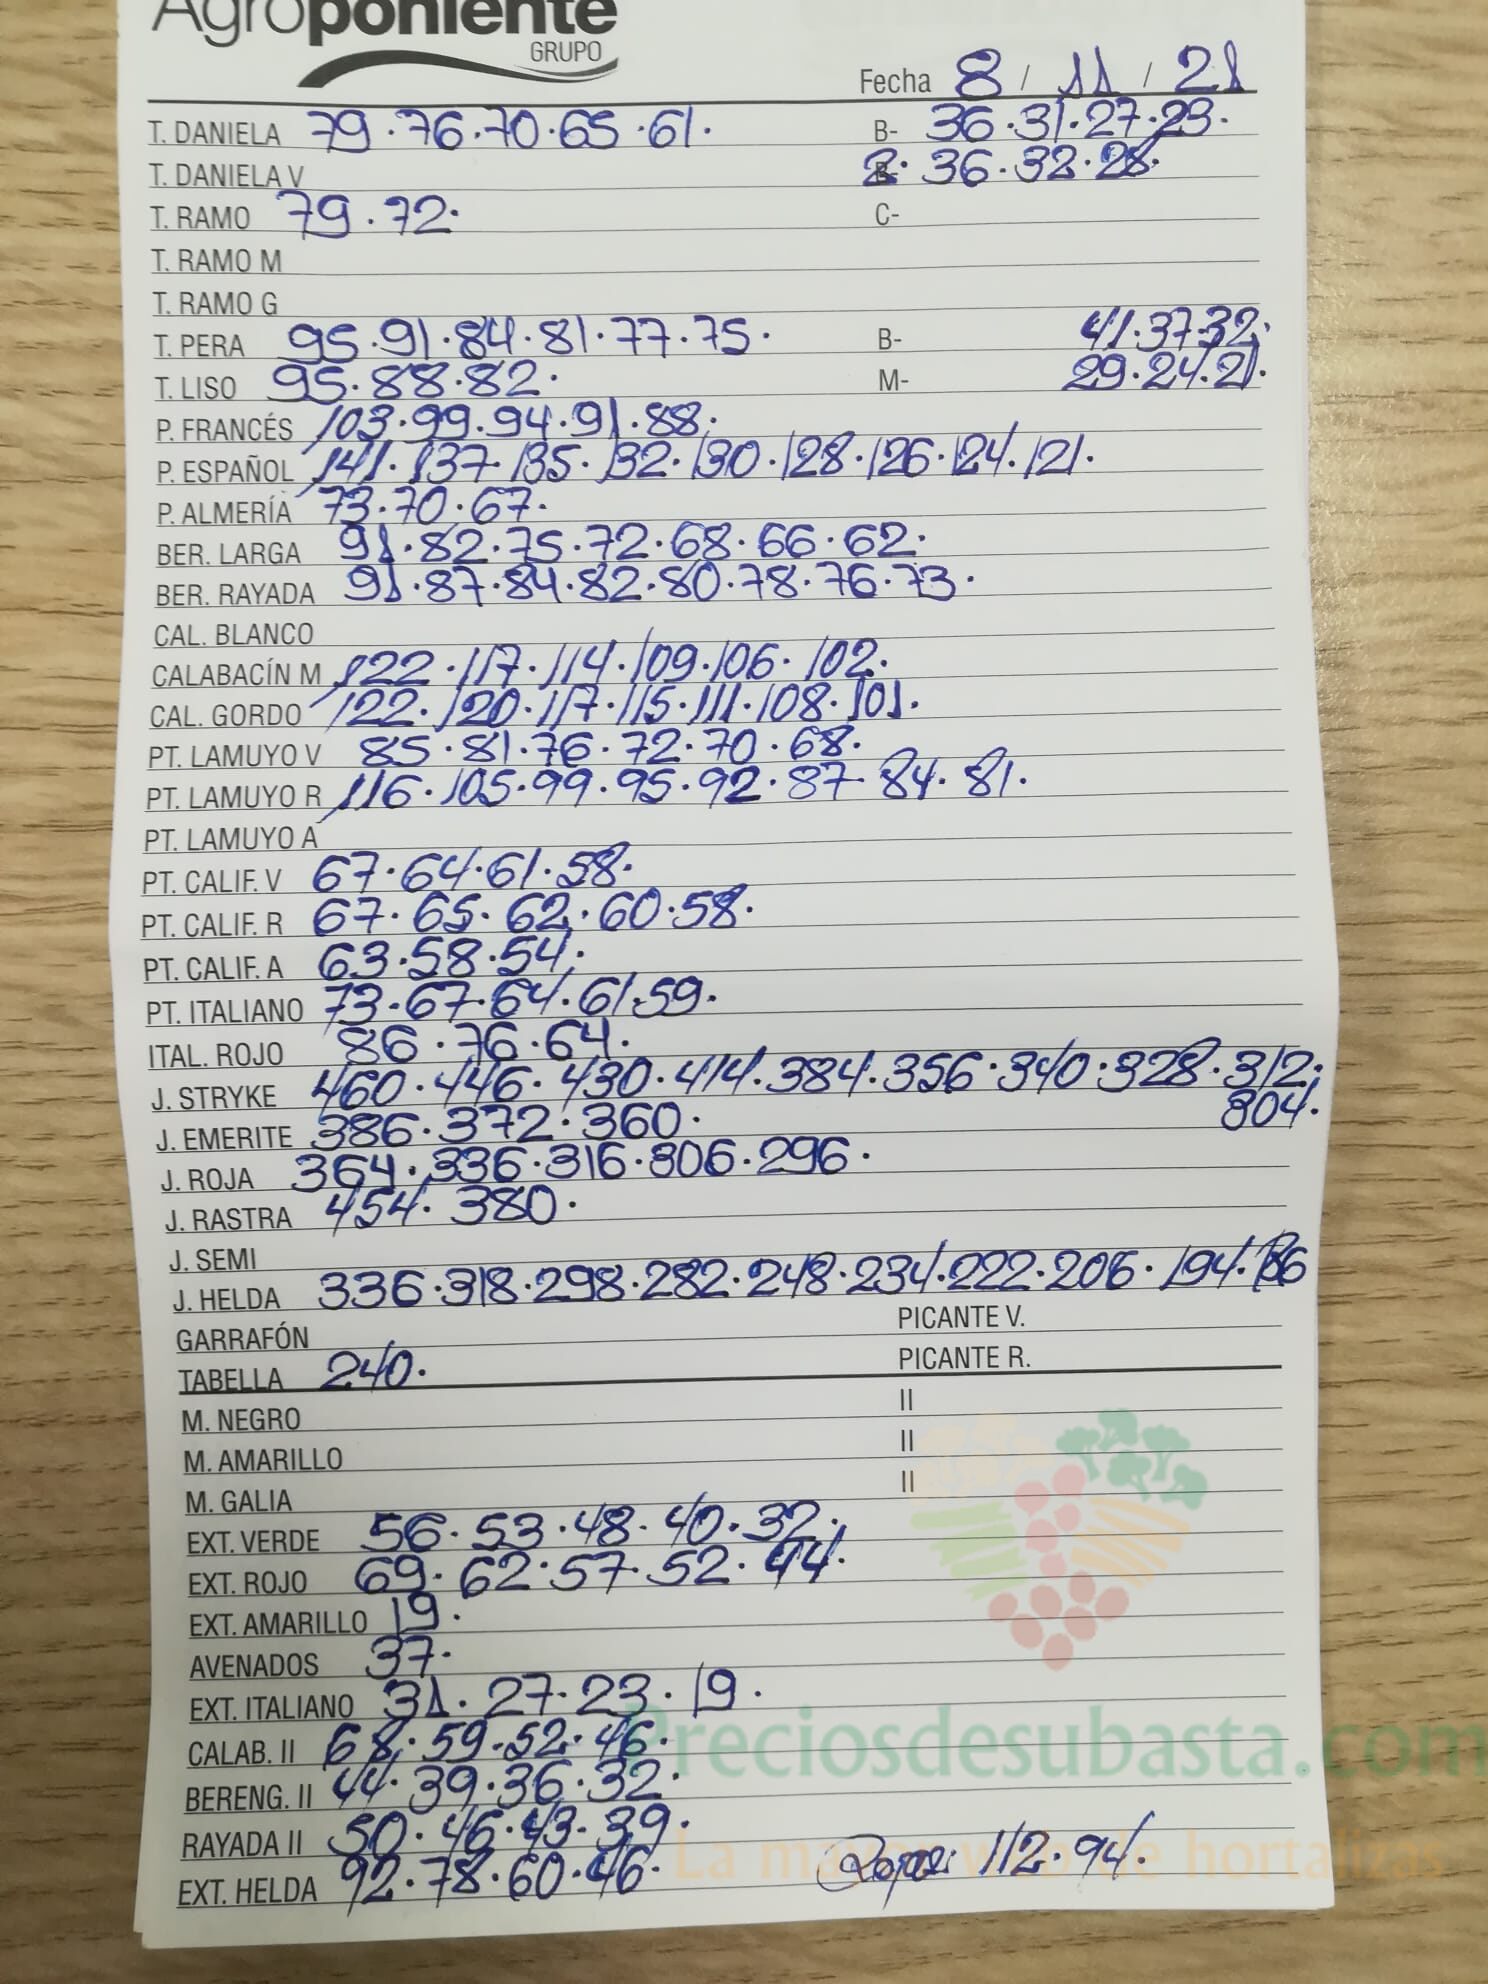 Agroponiente
GRUPO
Fecha 8 / 11 / 21
T. DANIELA 79.76.70.65.61. B- 36.31.27.23.
T. DANIELA V 2. 36.32.28.
T. RAMO 79.72. C-
T. RAMO M
T. RAMO G
T. PERA 95.91.84.81.77.75. B- 41.37.32.
T. LISO 95.88.82. M- 29.24.21.
P. FRANCÉS 103.99.94.91.88.
P. ESPAÑOL 141.137.135.132.130.128.126.124.121.
P. ALMERÍA 73.70.67.
BER. LARGA 91.82.75.72.68.66.62.
BER. RAYADA 91.87.84.82.80.78.76.73.
CAL. BLANCO
CALABACÍN M 122.117.114.109.106.102.
CAL. GORDO 122.120.117.115.111.108.101.
PT. LAMUYO V 85.81.76.72.70.68.
PT. LAMUYO R 116.105.99.95.92.87.84.81.
PT. LAMUYO A
PT. CALIF. V 67.64.61.58.
PT. CALIF. R 67.65.62.60.58.
PT. CALIF. A 63.58.54.
PT. ITALIANO 73.67.64.61.59.
ITAL. ROJO 86.76.64.
J. STRYKE 460.446.430.414.384.356.340.328.312.
304.
J. EMERITE 386.372.360.
J. ROJA 364.336.316.306.296.
J. RASTRA 454.380.
J. SEMI
J. HELDA 336.318.298.282.248.234.222.206.194.186
GARRAFÓN PICANTE V.
TABELLA 240. PICANTE R.
M. NEGRO II
M. AMARILLO II
M. GALIA II
EXT. VERDE 56.53.48.40.32.
EXT. ROJO 69.62.57.52.44.
EXT. AMARILLO 19.
AVENADOS 37.
EXT. ITALIANO 31.27.23.19.
CALAB. II 68.59.52.46.
BERENG. II 44.39.36.32.
RAYADA II 50.46.43.39.
EXT. HELDA 92.78.60.46. 112.94.
Preciosdesubasta.com
La mayor web de hortalizas